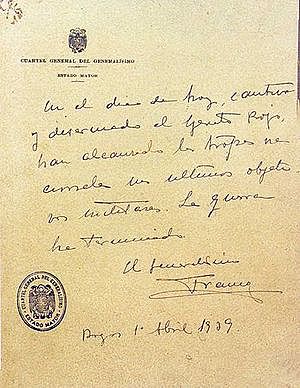 CUARTEL GENERAL DEL GENERALÍSIMO
ESTADO MAYOR
En el dia de hoy, cautivo
y desarmado el Ejército Rojo,
han alcanzado las tropas na-
cionales sus ultimos objeti-
vos militares. La guerra
ha terminado.
El Generalísimo
Franco
Burgos 1º Abril 1939.
CUARTEL GENERAL DEL GENERALISIMO
ESTADO MAYOR